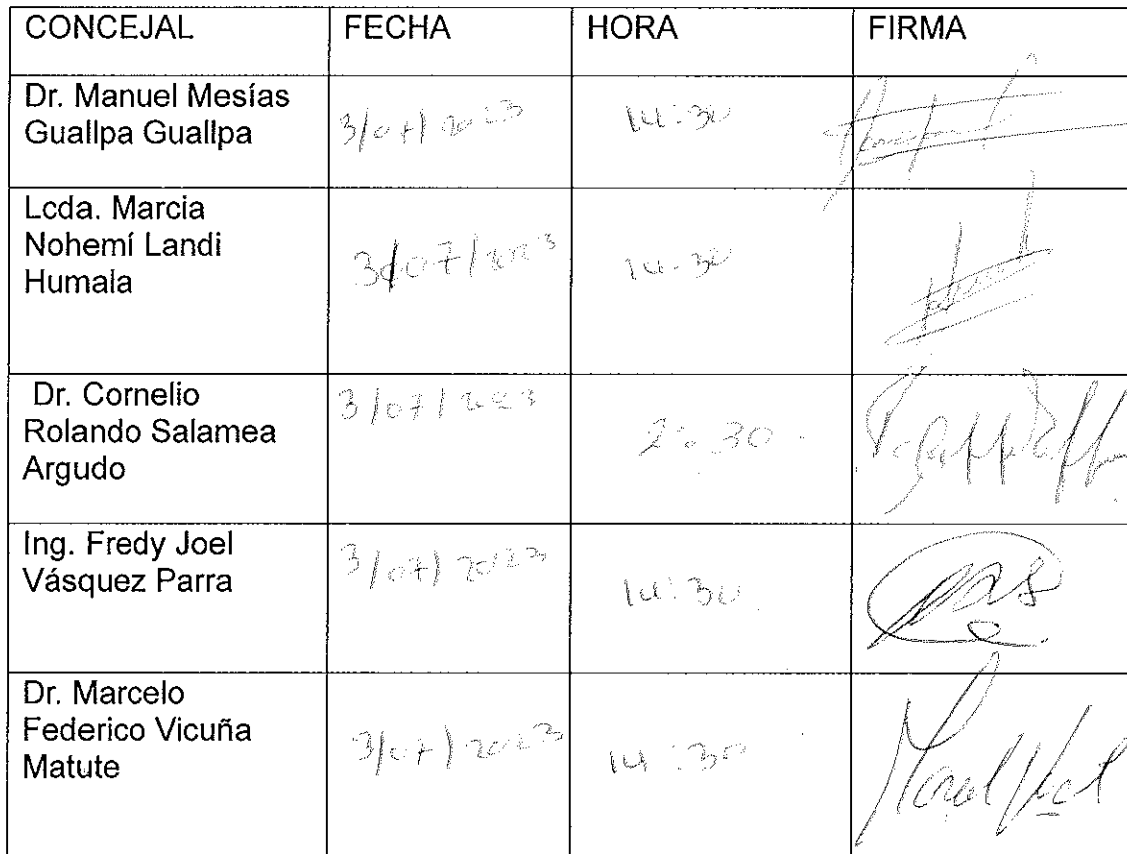 CONCEJAL FECHA HORA FIRMA
Dr. Manuel Mesías
Guallpa Guallpa
3/07/2023 14:30
Lcda. Marcia
Nohemí Landi
Humala
3/07/2023 14:30
Dr. Cornelio
Rolando Salamea
Argudo
3/07/2023 2:30
Ing. Fredy Joel
Vásquez Parra
3/07/2023 14:30
Dr. Marcelo
Federico Vicuña
Matute
3/07/2023 14:30